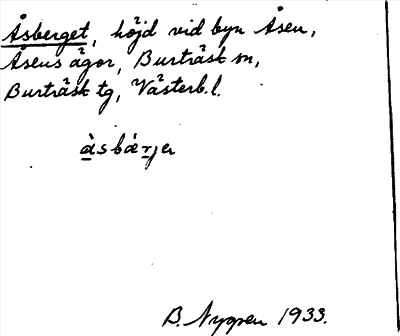 Åsberget, höjd vid byn Åsen,
Åsens ägor, Burträsk sn,
Burträsk tg, Västerb.l.
àsbærjer
B. Nygren 1933.